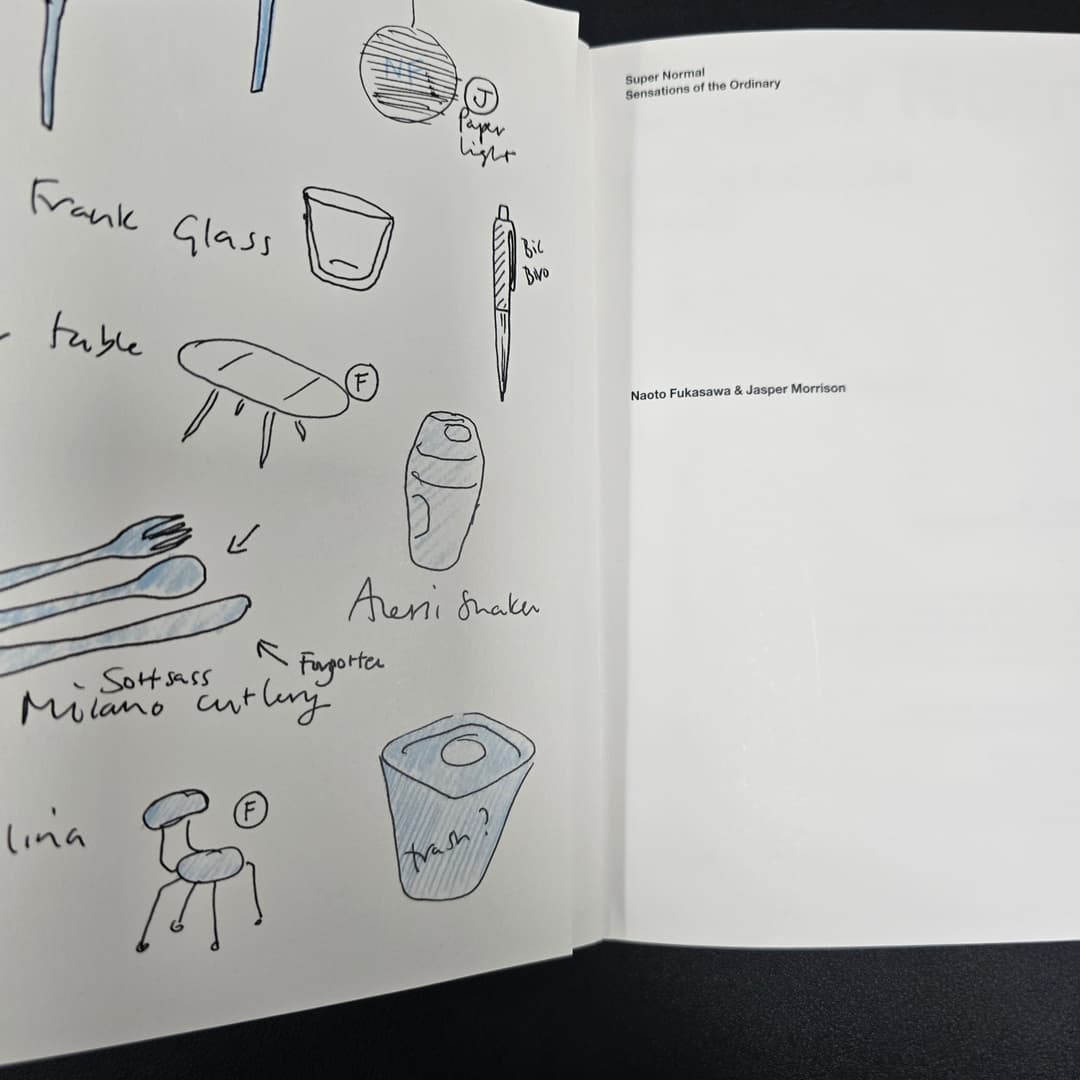 NF
J
Paper
light
Frank Glass
Bic
Biro
table
F
Alessi Shaker
Sottsass
Milano cutlery
F
lina
trash?
Super Normal
Sensations of the Ordinary
Naoto Fukasawa & Jasper Morrison